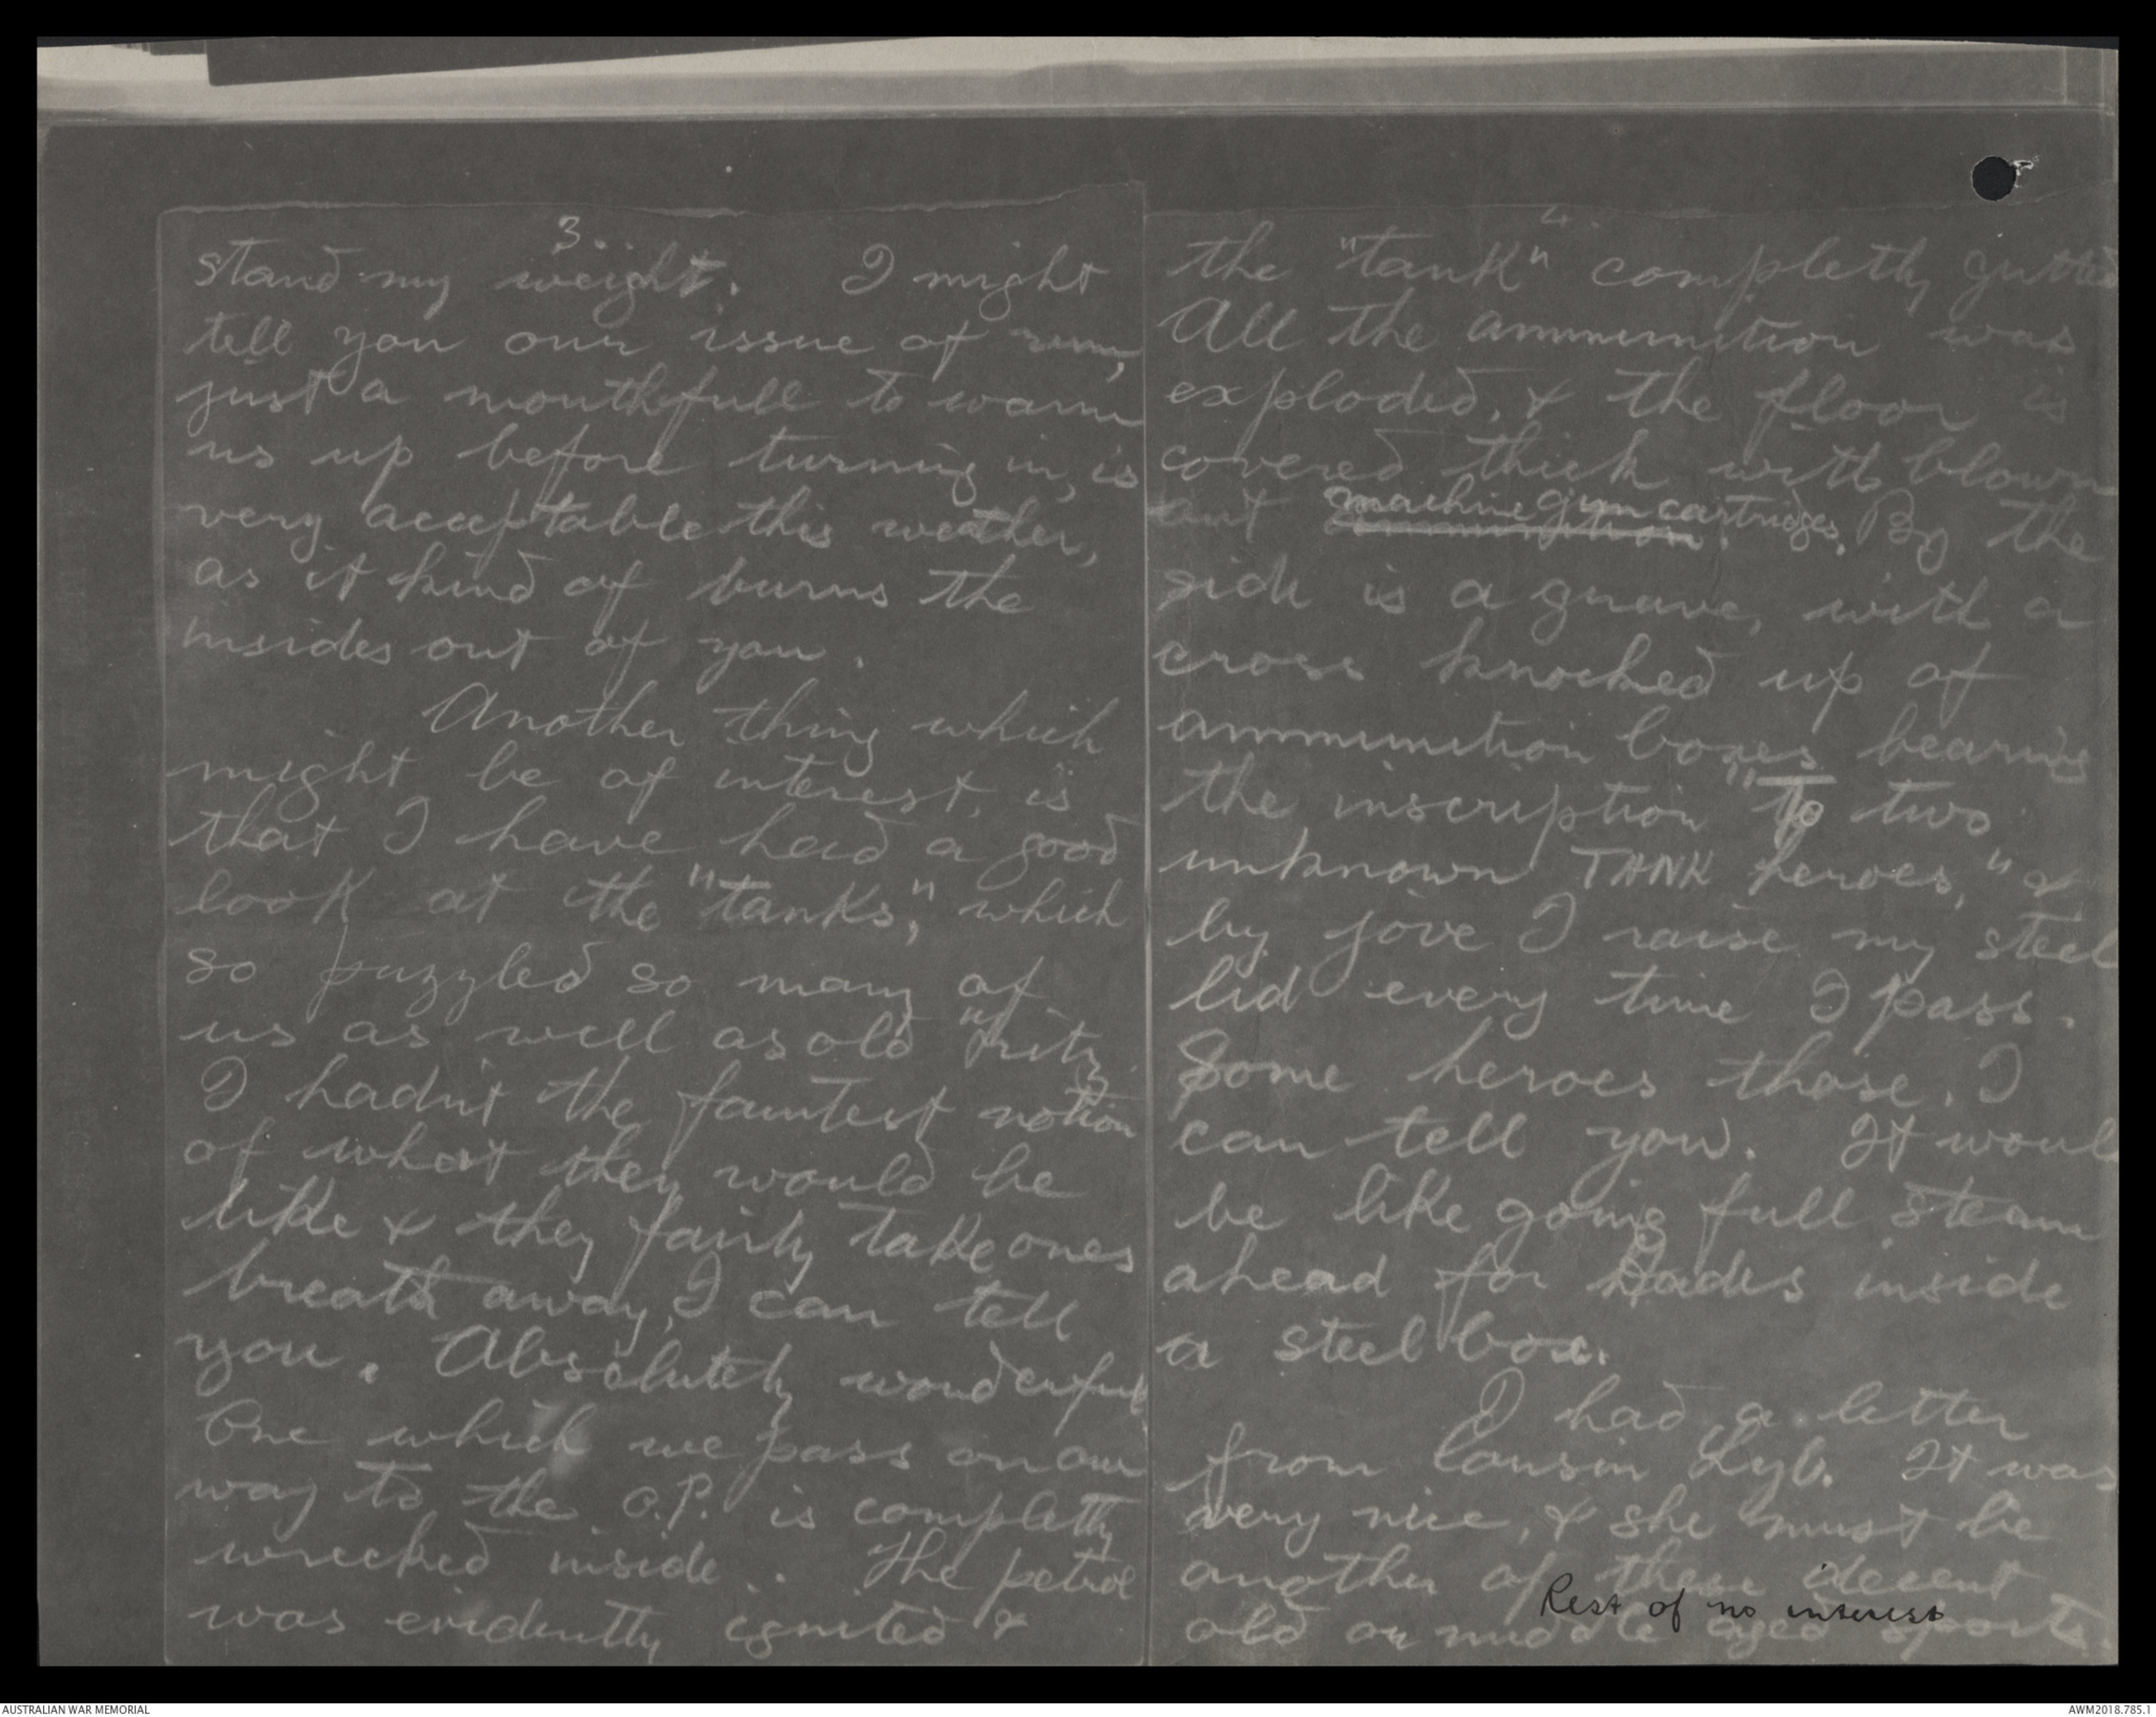 3.
stand my weight. I might
tell you our issue of rum,
just a mouthfull to warm
us up before turning in, is
very acceptable this weather,
as it kind of burns the
insides out of you.
Another thing which
might be of interest, is
that I have had a good
look at the "tanks," which
so puzzled so many of
us as well as old "Fritz"
I hadn't the faintest notion
of what they would be
like & they fairly take ones
breath away, I can tell
you. Absolutely wonderful
One which we pass on our
way to the O.P. is completly
wrecked inside.. The petrol
was evidently ignited &
4.
the "tank" completly gutted
All the ammunition was
exploded, & the floor is
covered thick with blown
out machine gun cartridges. By the
ammunition.
side is a grave, with a
cross knocked up of
ammunition boxes bearing
the inscription "To two
unknown TANK heroes," &
by jove I raise my steel
lid every time I pass.
Some heroes those, I
can tell you. It woul
be like going full steam
ahead for Hades inside
a steel box.
I had a letter
from Cousin Syb. It was
very nice, & she must be
another of these decent
old or middle aged sports.
Rest of no interest
AUSTRALIAN WAR MEMORIAL
AWM2018.785.1